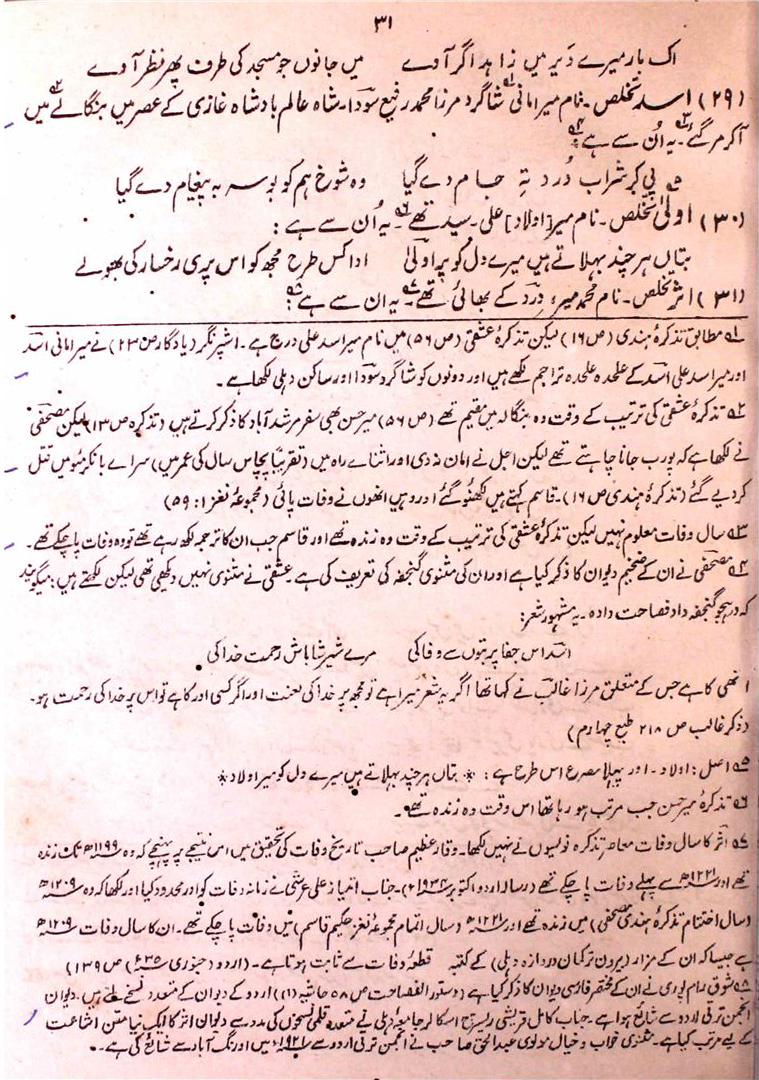 ۳۱
اک بار میرے دَیر میں زاہد اگر آوے میں جانوں جو مسجد کی طرف پھر نظر آوے
(۲۹) اسد تخلص۔ نام میر امانی شاگرد مرزا محمد رفیع سودا۔ شاہ عالم بادشاہ غازی کے عصر میں بنگالے میں
آکر مر گئے۔ یہ اُن سے ہے:
پی کر شراب دُردِ تہِ جام دے گیا وہ شوخ ہم کو بوسہ بہ پیغام دے گیا
(۳۰) اولیٰ تخلص۔ نام میر [اولاد] علی۔ سید تھے۔ یہ اُن سے ہے:
بتاں ہر چند بہلاتے ہیں میرے دل کو پر اولیٰ ادا کس طرح مجھ کو اس پری رخسار کی بھولے
(۳۱) اثر تخلص۔ نام محمد میر، درد کے بھائی تھے۔ یہ ان سے ہے:
۱؎ مطابق تذکرۂ ہندی (ص ۱۶) لیکن تذکرۂ عشقی (ص ۵۶) میں نام میر اسد علی درج ہے۔ اشپرنگر (یادگار ص ۲۳) نے میر امانی اسد
اور میر اسد علی اسد کے علٰحدہ علٰحدہ تراجم لکھے ہیں اور دونوں کو شاگرد سودا اور ساکن دہلی لکھا ہے۔
۲؎ تذکرۂ عشقی کی ترتیب کے وقت وہ بنگالہ میں مقیم تھے (ص ۵۶) میر حسن بھی سفر مرشد آباد کا ذکر کرتے ہیں (تذکرہ ص ۱۳) لیکن مصحفی
نے لکھا ہے کہ پورب جانا چاہتے تھے لیکن اجل نے امان نہ دی اور اثنائے راہ میں (تقریباً پچاس سال کی عمر میں) سرائے بانگرمئو میں قتل
کر دیے گئے (تذکرۂ ہندی ص ۱۶)۔ قاسم کہتے ہیں لکھنؤ گئے اور وہیں انھوں نے وفات پائی (مجموعۂ نغز ۱: ۵۹)
۳؎ سال وفات معلوم نہیں لیکن تذکرۂ عشقی کی ترتیب کے وقت وہ زندہ تھے اور قاسم جب ان کا ترجمہ لکھ رہے تھے تو وہ وفات پا چکے تھے۔
۴؎ مصحفی نے ان کے ضخیم دیوان کا ذکر کیا ہے اور ان کی مثنوی گنجفہ کی تعریف کی ہے عشقی نے مثنوی نہیں دیکھی تھی لیکن لکھتے ہیں: میگویند
کہ در ہجو گنجفہ داد فصاحت دادہ۔ یہ مشہور شعر:
اسد اس جفا پر بتوں سے وفا کی مرے شیر شاباش رحمت خدا کی
انھی کا ہے جس کے متعلق مرزا غالب نے کہا تھا اگر یہ شعر میرا ہے تو مجھ پر خدا کی لعنت اور اگر کسی اور کا ہے تو اس پر خدا کی رحمت ہو۔
(ذکر غالب ص ۲۱۸ طبع چہارم)
۵؎ اصل: اولاد۔ اور پہلا مصرع اس طرح ہے: * بتاں ہر چند بہلاتے ہیں میرے دل کو میر اولاد *
۶؎ تذکرۂ میر حسن جب مرتب ہو رہا تھا اس وقت وہ زندہ تھے۔
۷؎ اثر کا سال وفات معاصر تذکرہ نویسوں نے نہیں لکھا۔ وقار عظیم صاحب تاریخ وفات کی تحقیق میں اس نتیجے پر پہنچے کہ وہ سنہ ۱۱۹۹ھ تک زندہ
تھے اور سنہ ۱۲۲۱ھ سے پہلے وفات پا چکے تھے (رسالہ اردو اکتوبر سنہ ۱۹۳۴ء)۔ جناب امتیاز علی عرشی نے زمانہ وفات کو اور محدود کیا اور لکھا کہ وہ سنہ ۱۲۰۹ھ
(سال اختتام تذکرۂ ہندی مصحفی) میں زندہ تھے اور سنہ ۱۲۲۱ھ (سال اتمام مجموعۂ نغز حکیم قاسم) میں وفات پا چکے تھے۔ ان کا سال وفات سنہ ۱۲۰۹ھ
ہے جیسا کہ ان کے مزار (بیرون ترکمان دروازہ دہلی) کے کتبہ قطعۂ وفات سے ثابت ہوتا ہے۔ (اردو (جنوری ) ص ۱۳۹)
۸؎ شوق رام پوری نے ان کے مختصر فارسی دیوان کا ذکر کیا ہے (دستور الفصاحت ص ۵۸ حاشیہ (۱) اردو کے دیوان کے متعدد نسخے ملتے ہیں۔ دیوان
انجمن ترقی اردو سے شائع ہوا ہے۔ جناب کامل قریشی ریسرچ اسکالر جامعہ دہلی نے متعدد قلمی نسخوں کی مدد سے دیوان اثر کا ایک نیا متن اشاعت
کے لیے مرتب کیا ہے۔ مثنوی خواب و خیال مولوی عبد الحق صاحب نے انجمن ترقی اردو سے سنہ ۱۹۲۱ء میں اورنگ آباد سے شائع کی ہے۔